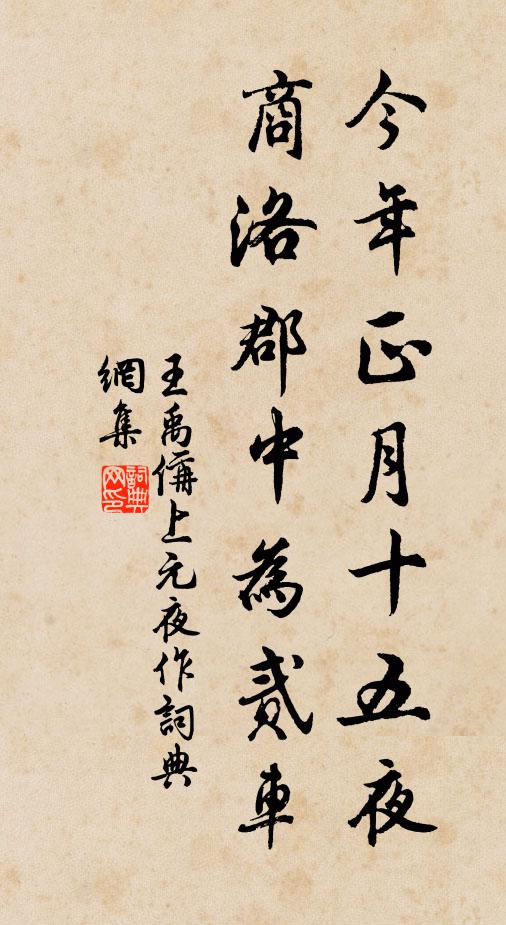 今年正月十五夜
商洛郡中為貳車
王禹偁上元夜作詞典
網集
詞典網印